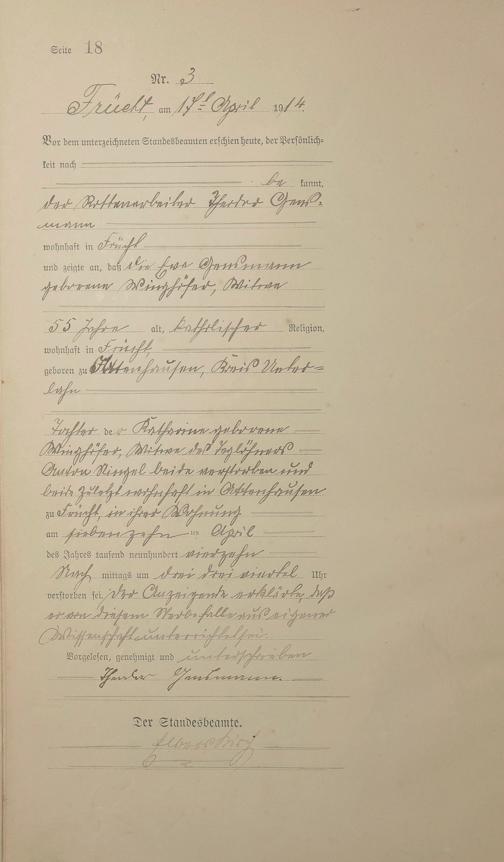 Seite 18
Nr. 3
Frücht, am 17ten April 1914.
Vor dem unterzeichneten Standesbeamten erschien heute, der Persönlich-
keit nach
be kannt,
der Rottenarbeiter Theodor Gens-
mann
wohnhaft in Frücht
und zeigte an, daß die Eva Gensmann
geborene Winghöfer, Witwe
55 Jahre alt, katholischer Religion,
wohnhaft in Frücht,
geboren zu Attenhausen, Kreis Unter-
lahn
Tochter der Katharine geborene
Winghöfer, Witwe des Taglöhners
Anton beide verstorben und
beide zuletzt wohnhaft in Attenhausen
zu Frücht, in ihrer Wohnung
am siebenzehn ten April
des Jahres tausend neunhundert vierzehn
Nach mittags um drei drei viertel Uhr
verstorben sei. Der Anzeigende erklärte, daß
er von diesem Sterbefalle aus eigener
Wissenschaft unterrichtet sei.
Vorgelesen, genehmigt und unterschrieben
Theodor Gensmann
Der Standesbeamte.